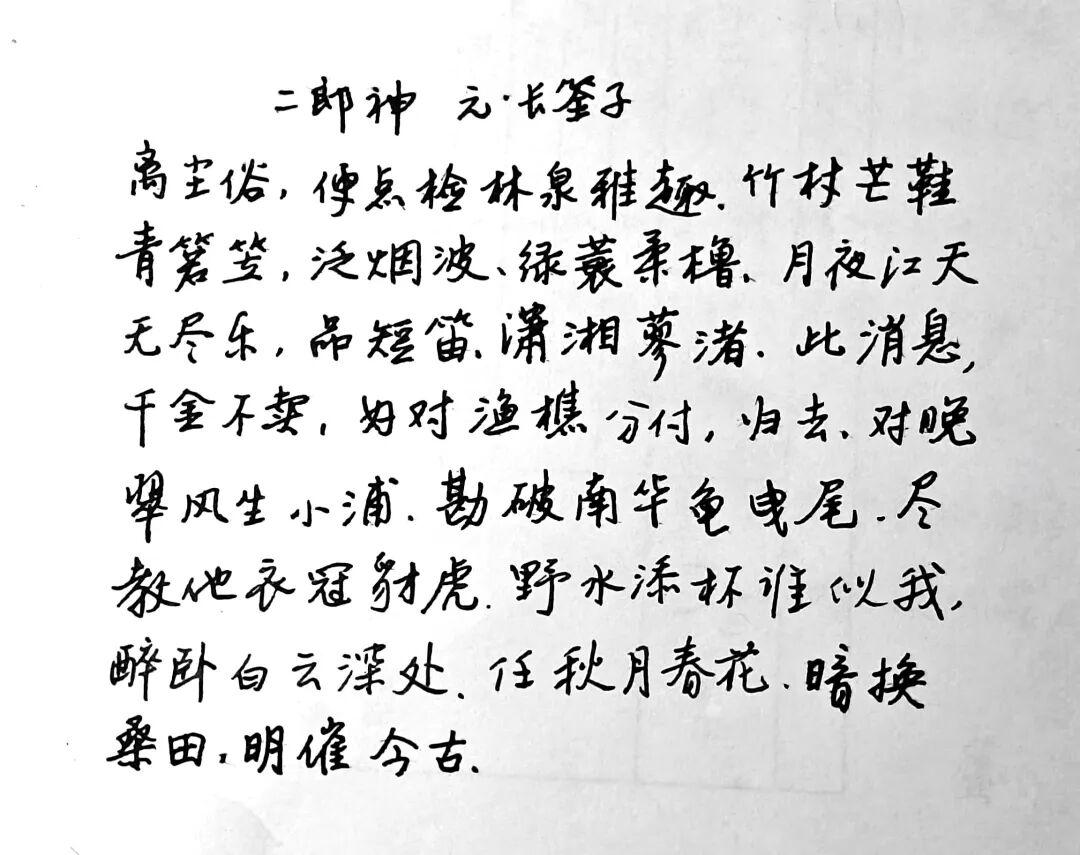 二郎神 元·长筌子
离尘俗，便点检林泉雅趣.竹杖芒鞋
青箬笠，泛烟波、绿蓑柔橹、月夜江天
无尽乐，品短笛、潇湘蓼渚.此消息，
千金不卖，好对渔樵分付，归去、对晚
翠风生小浦.勘破南华龟曳尾.尽
教他衣冠豺虎.野水添杯谁似我，
醉卧白云深处.任秋月春花.暗换
桑田，明催今古.